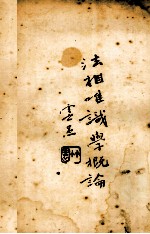 法相唯識學概論